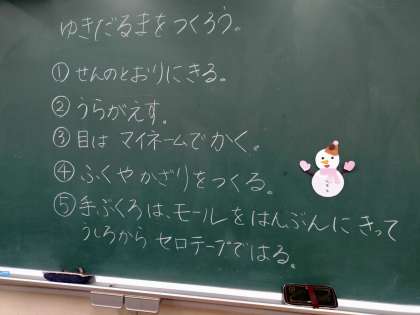 ゆきだるまをつくろう。
①せんのとおりにきる。
②うらがえす。
③目は マイネームでかく。
④ふくやかざりをつくる。
⑤手ぶくろは、モールをはんぶんにきって
うしろから セロテープではる。